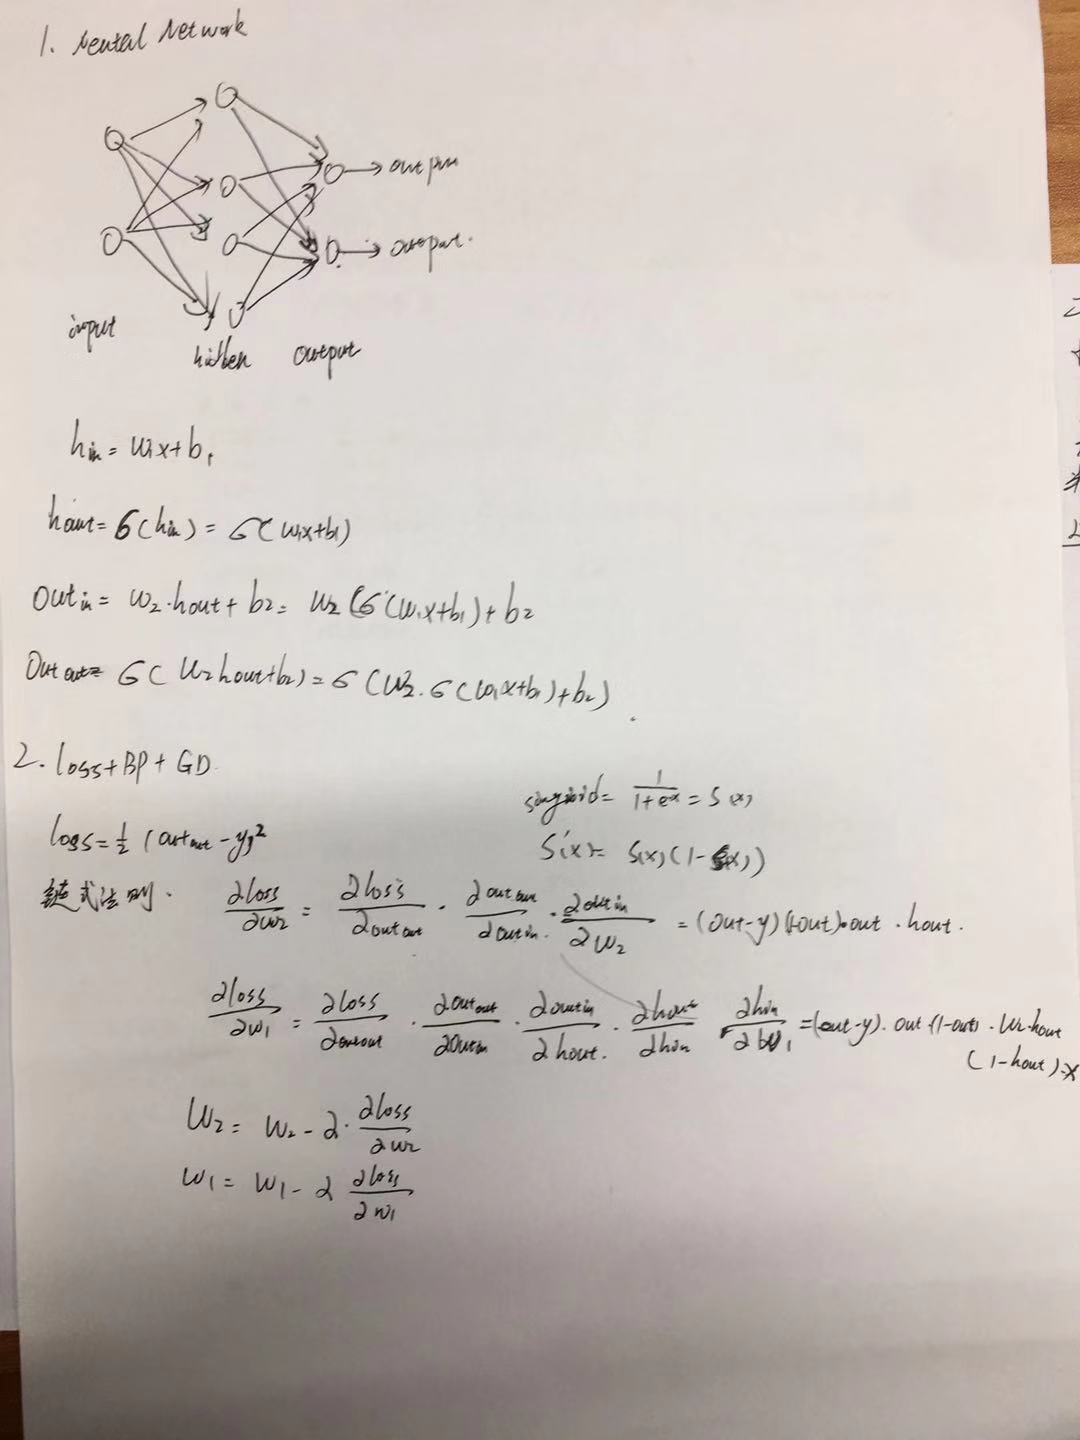 1. Neutal Network
→ outpun
→ output.
input
hidden output
h_in = w₁x+b₁
hout = σ(h_in) = σ(w₁x+b₁)
Out_in = w₂·hout + b₂ = w₂(σ(w₁x+b₁)+b₂
Out_out = σ(w₂hout+b₂) = σ(w₂·σ(w₁x+b₁)+b₂)
2. loss+BP+GD
sigmoid = 1/(1+eˣ) = S(x)
loss = ½(out_out - y)²
S'(x) = S(x)(1-S(x))
链式法则. ∂loss/∂w₂ = ∂loss/∂out_out · ∂out_out/∂out_in · ∂out_in/∂w₂ = (out-y)(1-out)·out·hout.
∂loss/∂w₁ = ∂loss/∂out_out · ∂out_out/∂out_in · ∂out_in/∂hout · ∂hout/∂h_in ∂h_in/∂w₁ = (out-y)·out·(1-out)·w₂·hout
(1-hout)·x
w₂ = w₂ - ∂·∂loss/∂w₂
w₁ = w₁ - ∂ ∂loss/∂w₁